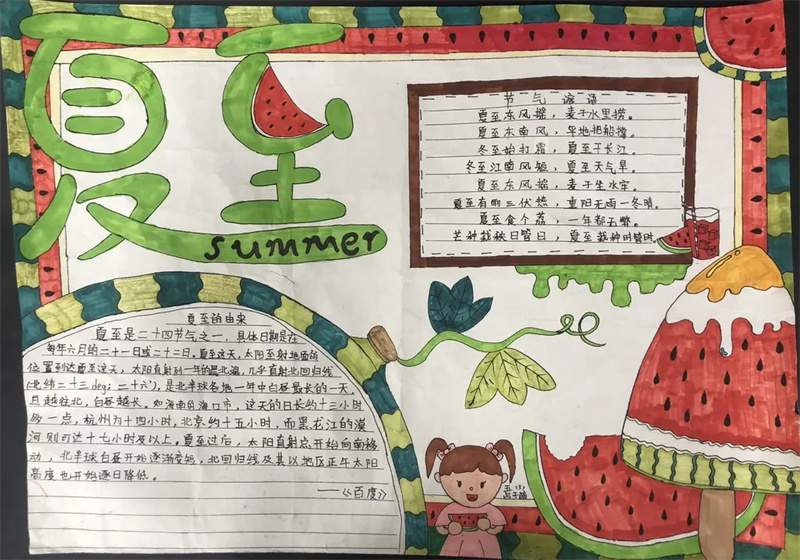 夏至
summer
节气谚语
夏至东风摇，麦子水里捞。
夏至东南风，平地把船撑。
冬至始打霜，夏至干长江。
冬至江南风短，夏至天气旱。
夏至东风摇，麦子坐水牢。
夏至有雨三伏热，重阳无雨一冬晴。
夏至食个荔，一年都无弊。
芒种栽秧日管日，夏至栽秧时管时。
夏至的由来
夏至是二十四节气之一，具体日期是在
每年六月的二十一日或二十二日。夏至这天，太阳至射地面的
位置到达夏至这天，太阳直射到一年的最北端，几乎直射北回归线
(北纬二十三degi 二十六)，是北半球各地一年中白昼最长的一天。
且越往北，白昼越长。如海南的海口市，这天的日长约十三小时
多一点，杭州为十四小时，北京约十五小时，而黑龙江的漠
河则可达十七小时及以上。夏至过后，太阳直射点开始向南移
动，北半球白昼开始逐渐变短，北回归线及其以北地区正午太阳
高度也开始逐日降低。
——《百度》